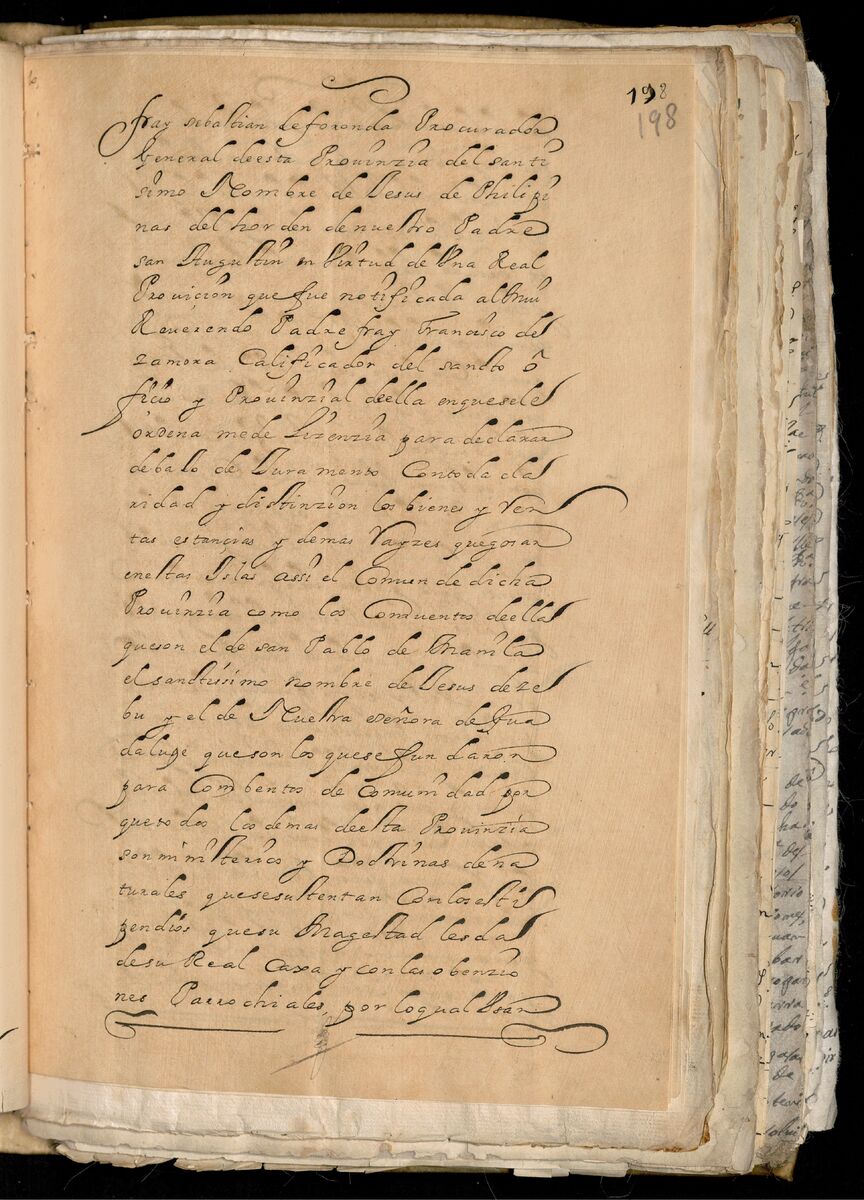 198
198
fray sebastian de foronda Procurador
General de esta Prouinzia del santi
simo Nombre de Jesus de Philipi
nas del horden de nuestro Padre
san Augustin en Virtud de Vna Real
Prouicion que fue notificada al Muy
Reuerendo Padre fray Francisco de
zamora Calificador del sancto o
ficio y Prouinzial de ella en que se le
ordena me de Lizenzia para declarar
debaxo de Juramento Con toda cla
ridad y distinzion los bienes y Ren
tas estançias y demas Rayzes que gosan
en estas Yslas assi el Comun de dicha
Prouinzia como los Conuentos de ella
que son el de san Pablo de Manila
el sanctissimo nombre de Jesus de ze
bu y el de Nuestra señora de Gua
dalupe que son los que se fundaron
para Combentos de Comunidad por
que todos los demas de esta Prouinzia
son ministerios y Doctrinas de na
turales que se sustentan Con los esti
pendios que su Magestad les da
de su Real Caxa y con las obenzio
nes Parrochiales, por lo qual Vsan